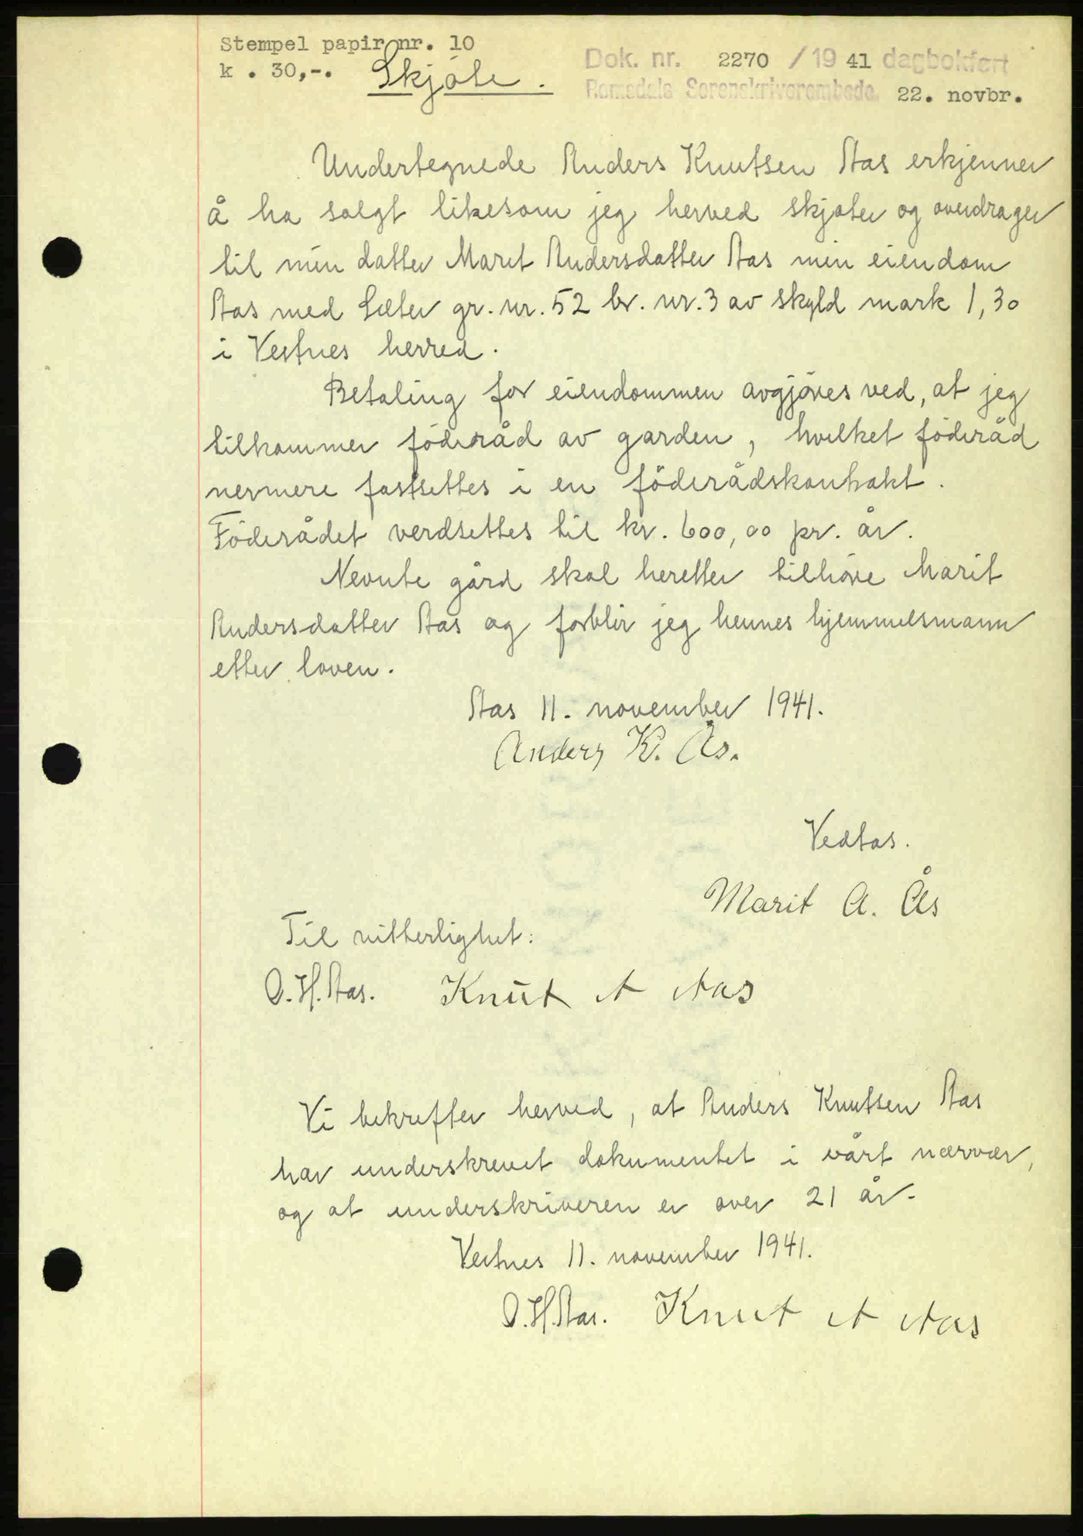 Stempel papir nr. 10
k . 30,-.
Skjöte.
Dok. nr. 2270 / 19 41 dagbokført
Romsdals Sorenskriverembede. 22. novbr.
Undertegnede Anders Knutsen Aas erkjenner
å ha solgt likesom jeg herved skjøter og overdrager
til min datter Marit Andersdatter Aas min eiendom
Aas med Sæter gr. nr. 52 br. nr. 3 av skyld mark 1,30
i Vestnes herred.
Betaling for eiendommen avgjöres ved, at jeg
tilkommer föderåd av garden, hvilket föderåd
nermere fastsettes i en föderådskontrakt.
Föderådet verdsettes til kr. 600,00 pr. år.
Nevnte gård skal heretter tilhöre Marit
Andersdatter Aas og forblir jeg hennes hjemmelsmann
etter loven.
Aas 11. november 1941.
Anders K. Ås.
Vedtas.
Marit A. Ås
Til vitterlighet:
O. H. Aas. Knut A Aas
Vi bekrefter herved, at Anders Knutsen Aas
har underskrevet dokumentet i vårt nærvær,
og at underskriveren er over 21 år.
Vestnes 11. november 1941.
O. H. Aas. Knut A Aas